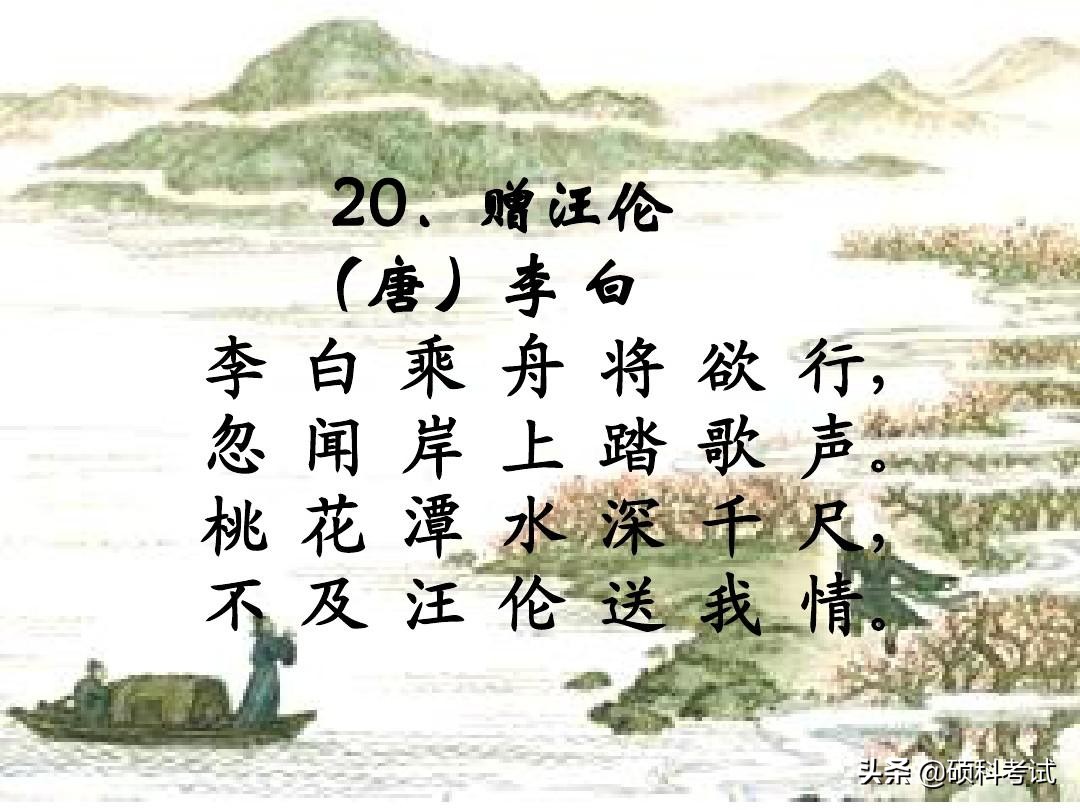 20. 赠汪伦
（唐）李白
李白乘舟将欲行，
忽闻岸上踏歌声。
桃花潭水深千尺，
不及汪伦送我情。
头条 @硕科考试